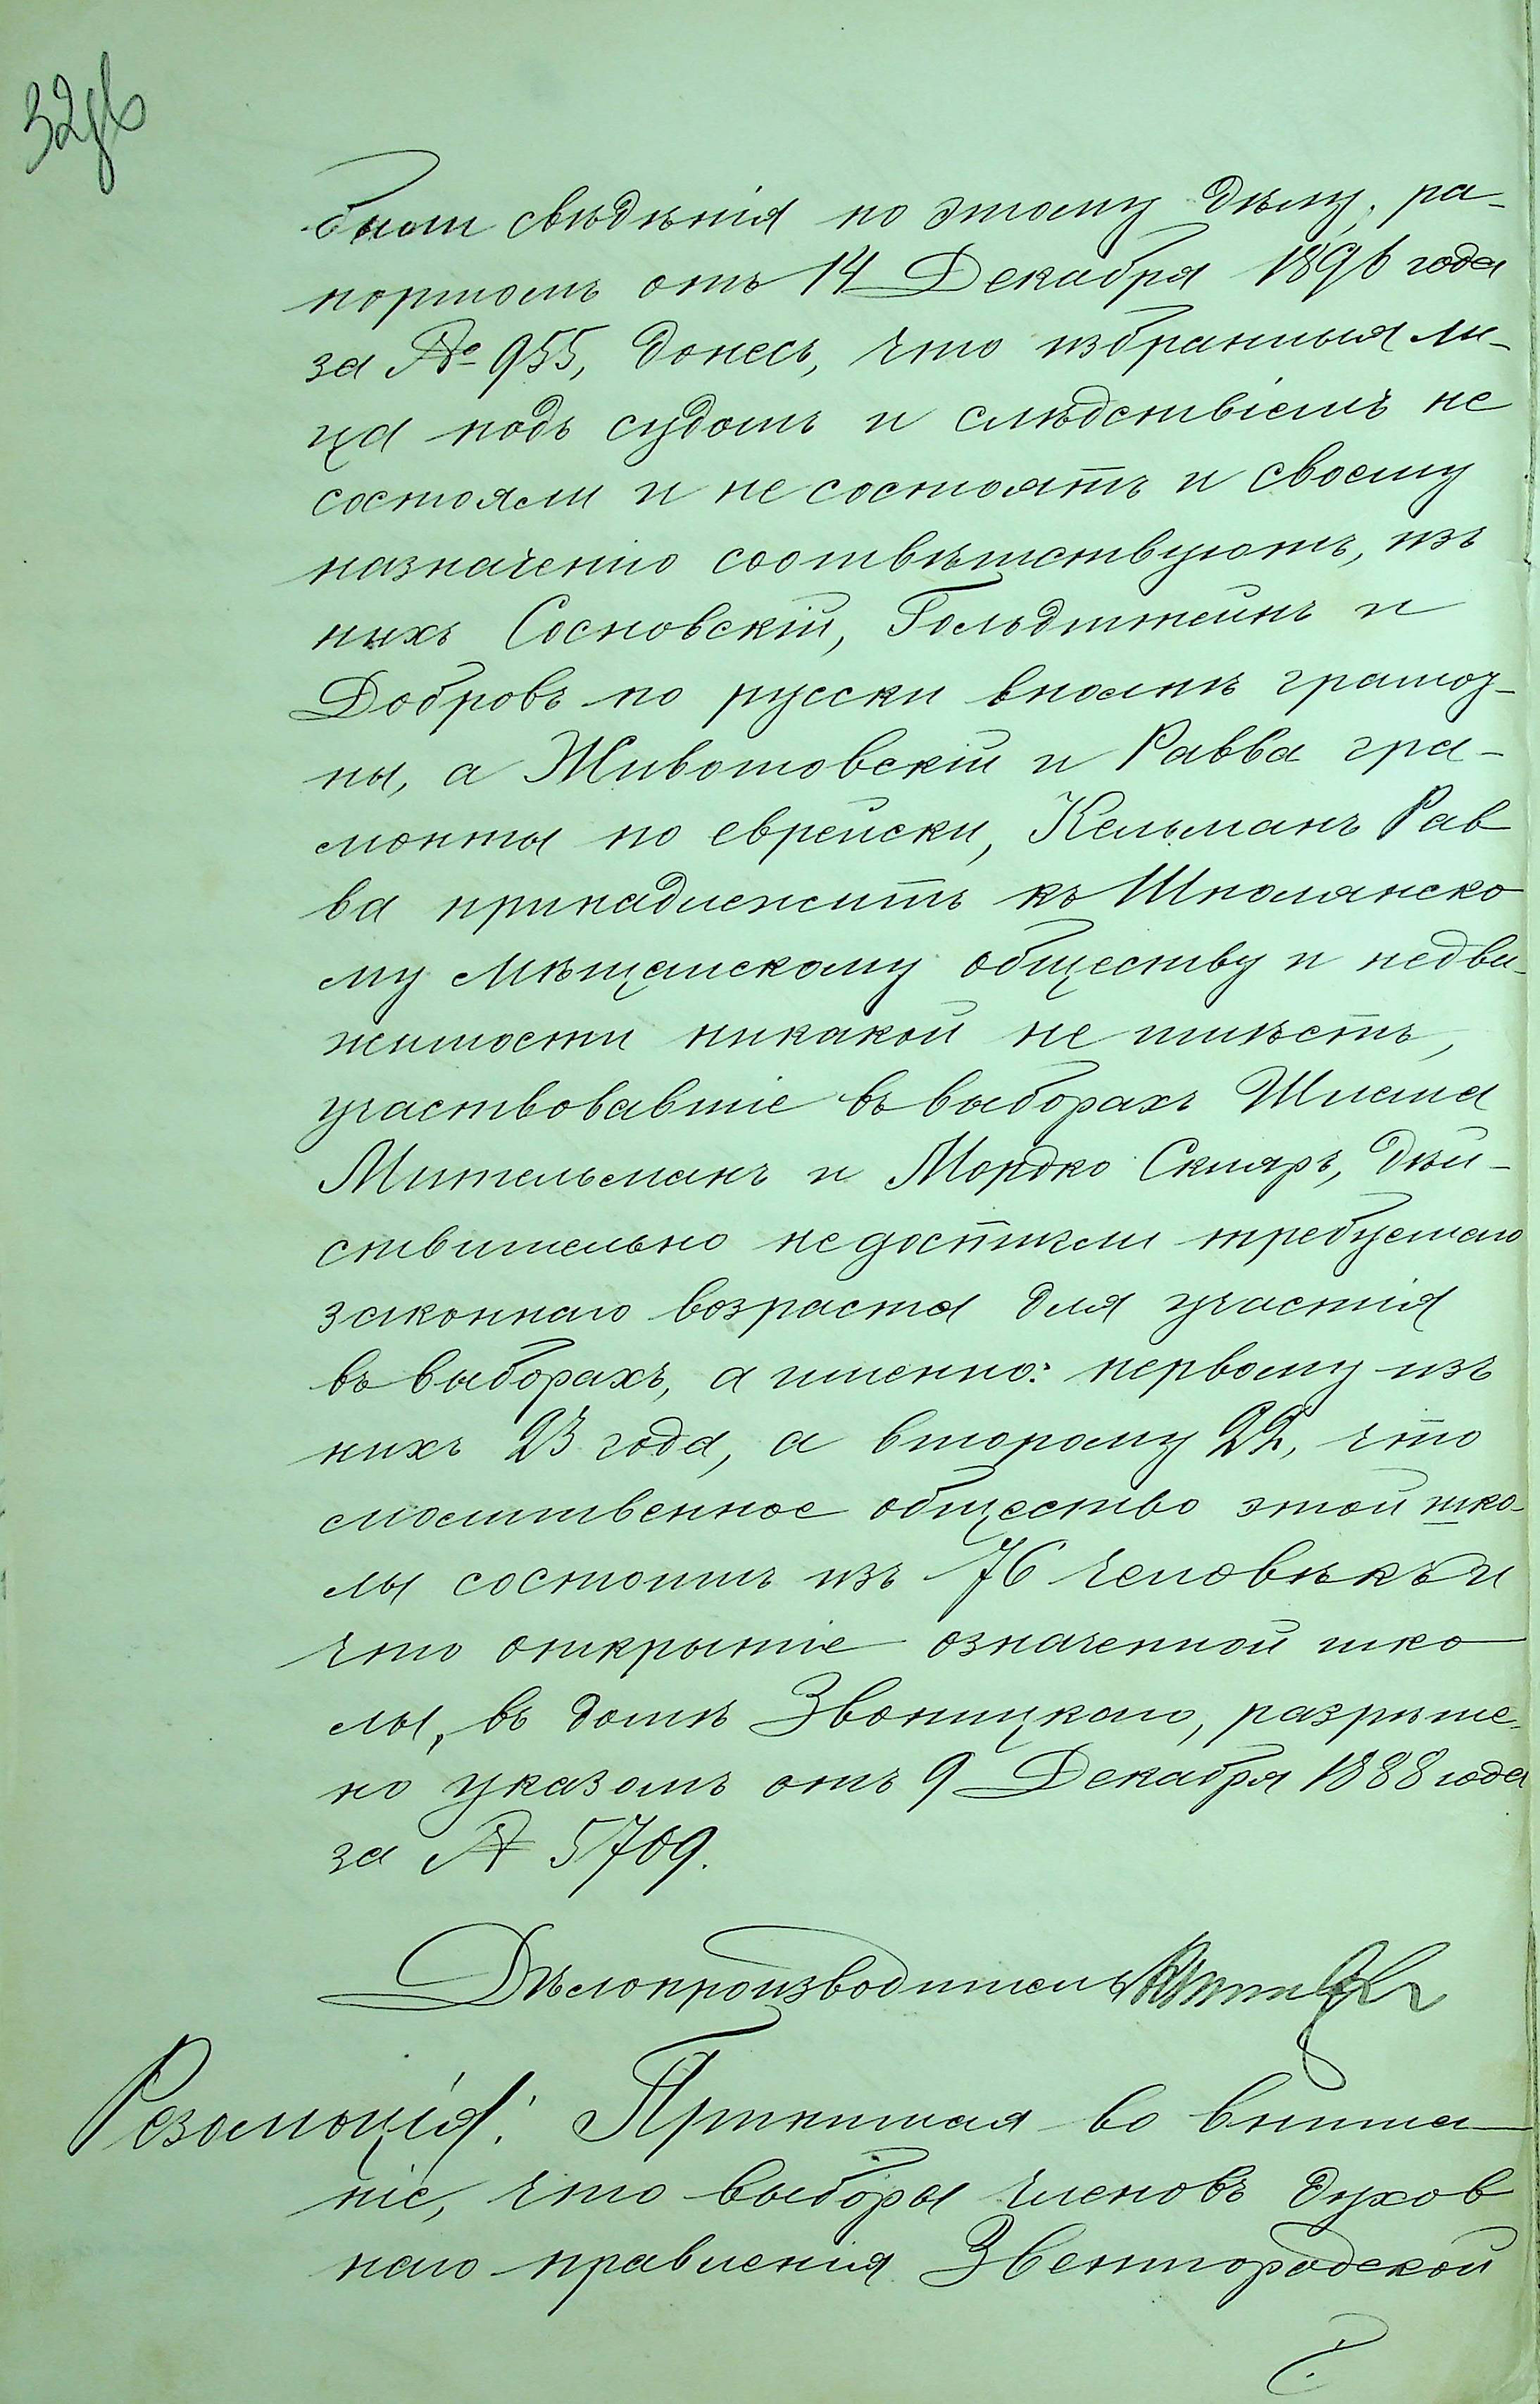 32об
бныя свѣдѣнія по этому дѣлу, ра-
портомъ отъ 14 Декабря 1896 года
за № 955, донесъ, что избранныя ли-
ца подъ судомъ и слѣдствіемъ не
состояли и не состоятъ и своему
назначенію соотвѣтствуютъ, изъ
нихъ Сосновскій, Гольдштейнъ и
Добровъ по русски вполнѣ грамот-
ны, а Животовскій и Равва гра-
мотны по еврейски, Кельманъ Рав
ва принадлежитъ къ Шполянско
му мѣщанскому обществу и недви-
жимости никакой не имѣетъ,
участвовавшіе въ выборахъ Шлема
Мительманъ и Мордко Скляръ, дѣй-
ствительно не достигли требуемаго
законнаго возраста для участія
въ выборахъ, а именно: первому изъ
нихъ 23 года, а второму 22, что
молитвенное общество этой шко-
лы состоитъ изъ 76 человѣкъ и
что открытіе означенной шко
лы, въ домѣ Звоницкаго, разрѣше-
но указомъ отъ 9 Декабря 1888 года
за № 5709.
Дѣлопроизводитель
Резолюція: Принимая во внима
ніе, что выборы членовъ духов
наго правленія Звенигородской